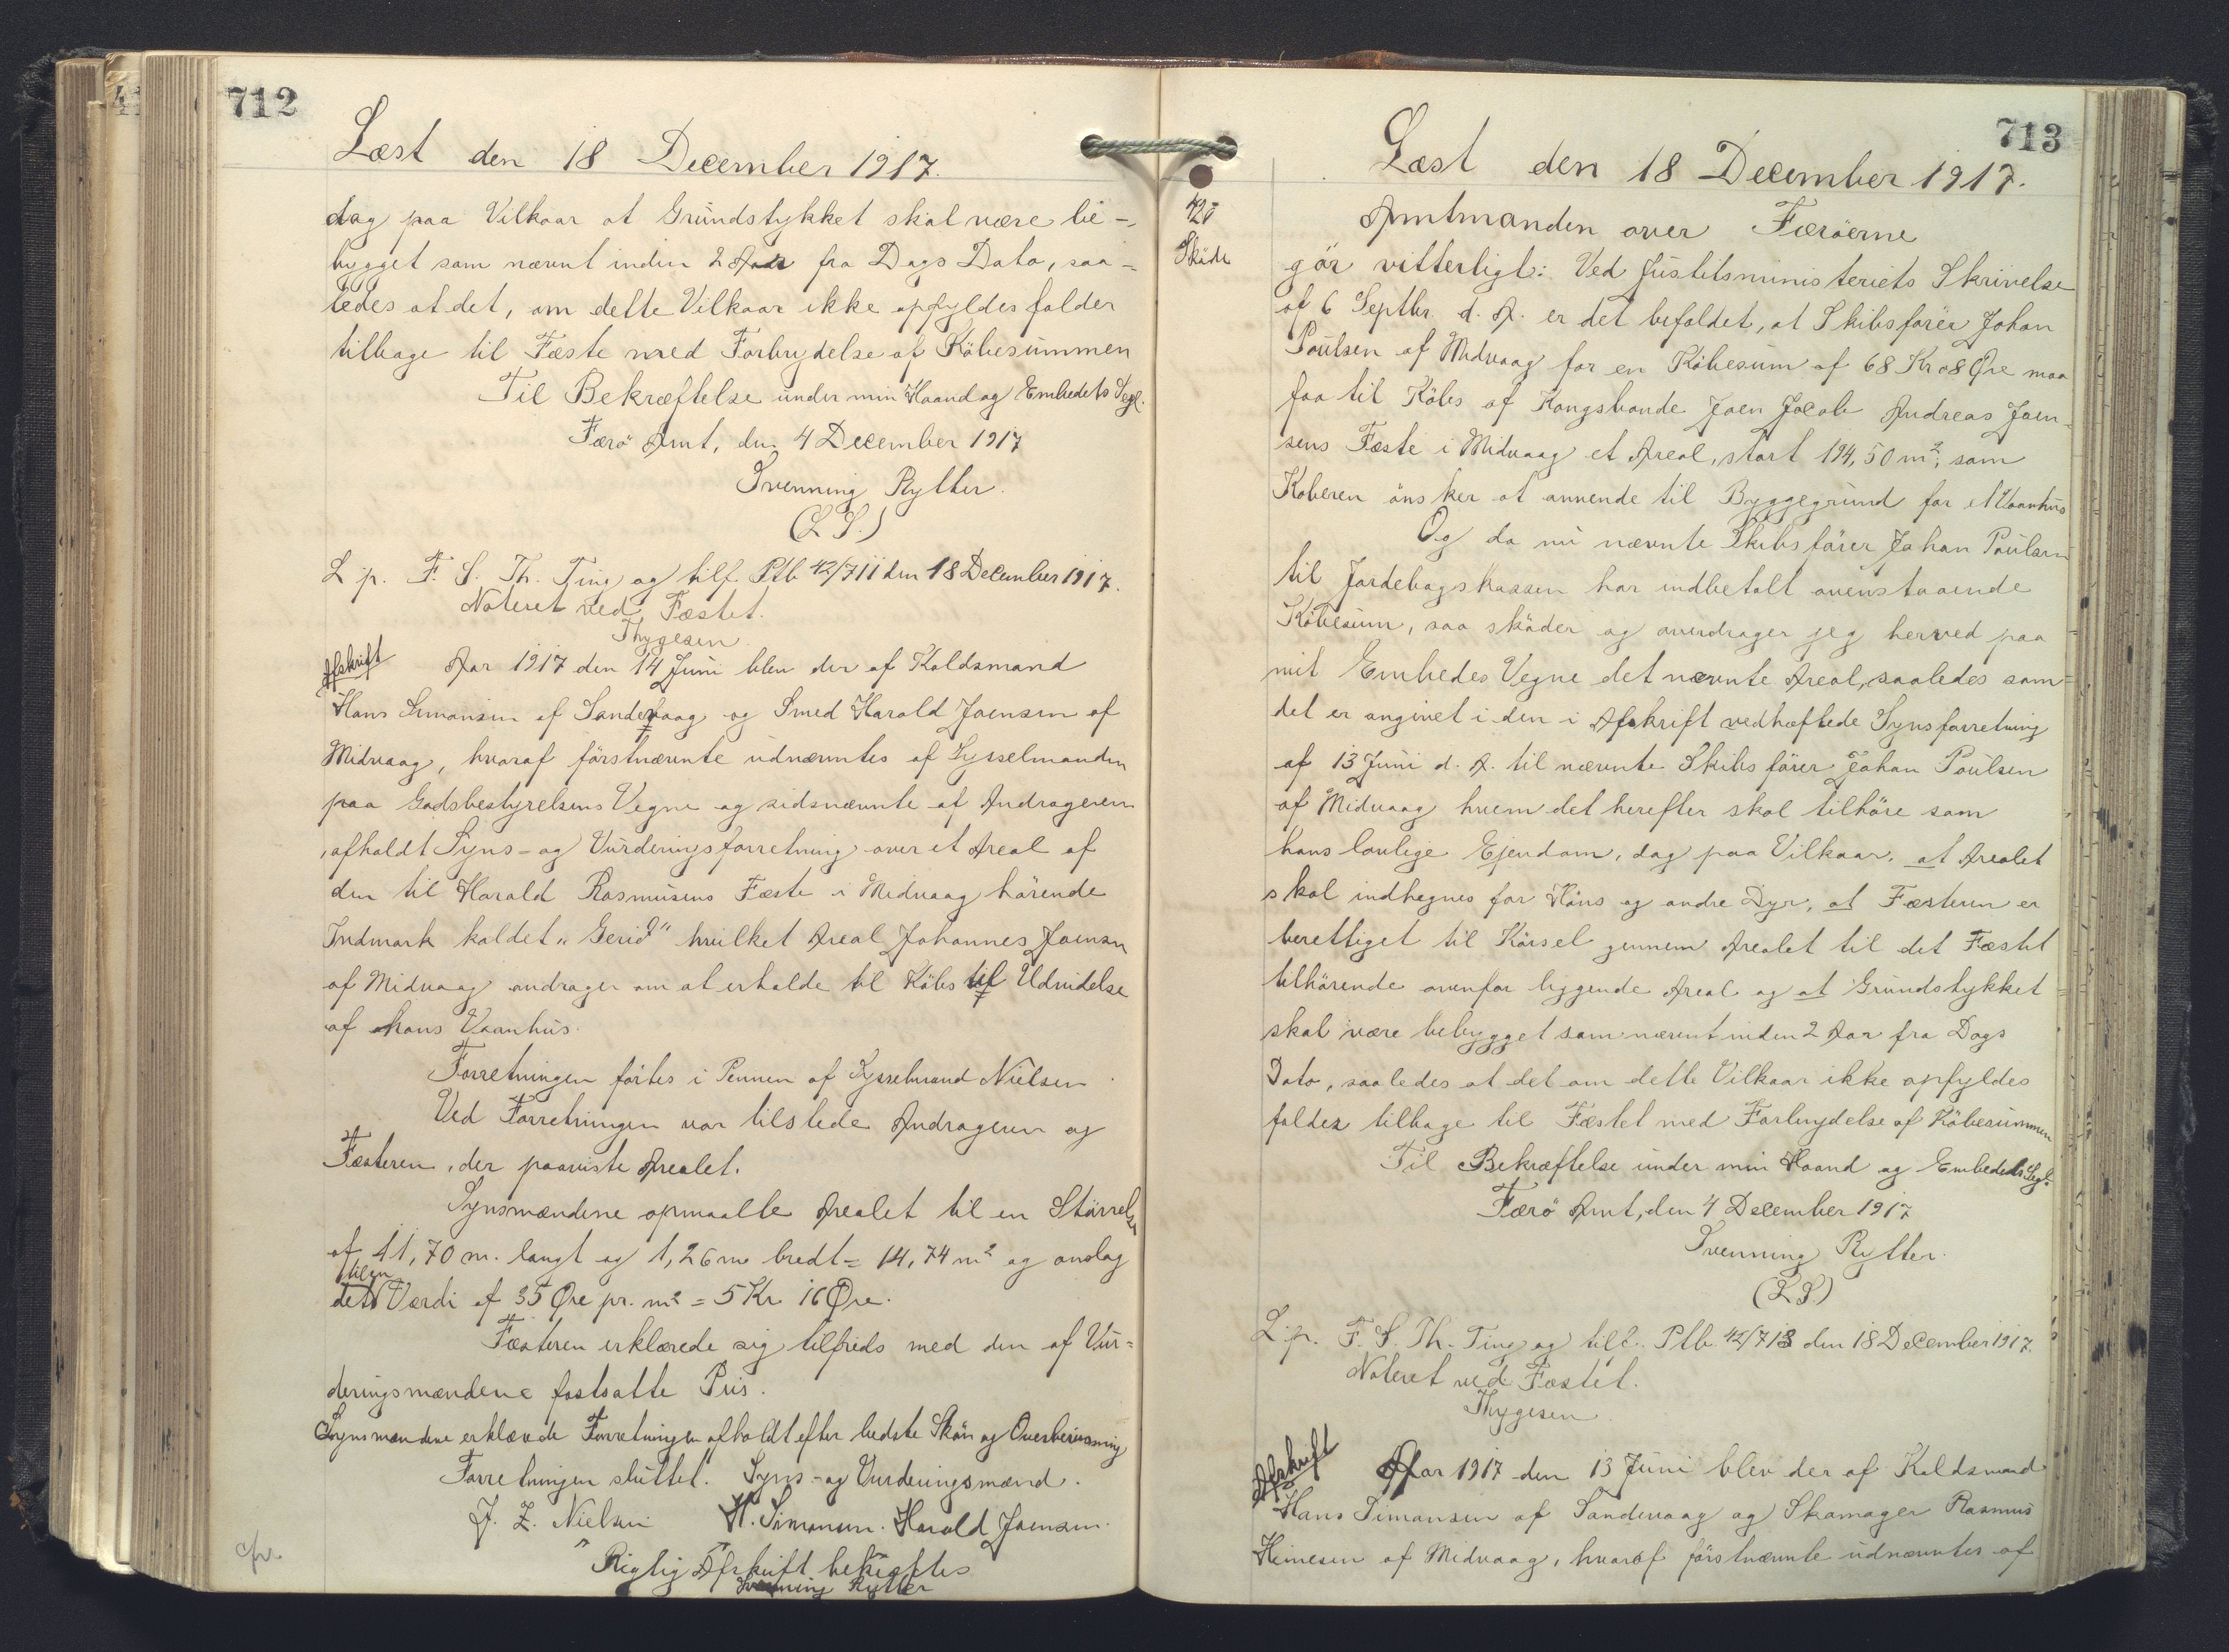 712
Læst den 18 December 1917.
dog paa Vilkaar at Grundstykket skal være be-
bygget som nævnt inden 2 Aar fra Dags Dato, saa-
ledes at det, om dette Vilkaar ikke opfyldes falder
tilbage til Fæste med Forbrydelse af Köbesummen
Til Bekræftelse under min Haand og Embedets Segl.
Færö Amt, den 4 December 1917
Svenning Rytter.
(L S.)
L p. F. S. Th. Ting og tilf. Ptb 42/711 den 18 December 1917.
Noteret ved Fæstet.
Thygesen
Afskrift Aar 1917 den 14 Juni blev der af Koldsmand
Hans Simonsen af Sandevaag og Smed Harald Joensen af
Midvaag, hvoraf förstnævnte udnævntes af Sysselmanden
paa Godsbestyrelsens Vegne og sidsnævnte af Andrageren
, afholdt Syns- og Vurderingsforretning over et Areal af
den til Harald Rasmusens Fæste i Midvaag hörende
Indmark kaldet „Gerid" hvilket Areal Johannes Joensen
af Midvaag andrager om at erholde til Köbs til Udvidelse
af hans Vaanhus.
Forretningen förtes i Pennen af Sysselmand Nielsen
Ved Forretningen var tilstede Andrageren og
Fæsteren, der paaviste Arealet.
Synsmændene opmaalte Arealet til en Störrelse
af 11,70 m. langt og 1,26 m bredt = 14,74 m² og anslog
til en
dets Værdi af 35 Øre pr. m² = 5 Kr 16 Øre.
Fæsteren erklærede sig tilfreds med den af Vur-
deringsmændene fastsatte Pris.
Synsmændene erklærede Forretningen afholdt efter bedste Skön og Overbevisning
Forretningen sluttet. Syns- og Vurderingsmænd.
J. Z. Nielsen H. Simonsen. Harald Joensen.
Rigtig Afskrift bekræftes
Svenning Rytter
cfr.
713
Læst den 18 December 1917.
428
Sköde
Amtmanden over Færöerne
gör vitterligt: Ved Justitsministeriets Skrivelse
af 6 Septbr. d. A. er det befaldet, at Skibsförer Johan
Poulsen af Midvaag for en Köbesum af 68 Kr 08 Øre maa
faa til Köbs af Kongsbonde Joen Jacob Andreas Joen-
sens Fæste i Midvaag et Areal, stort 194,50 m², som
Köberen önsker at anvende til Byggegrund for et Vaanhus
Og da nu nævnte Skibsförer Johan Poulsen
til Jordebogskassen har indbetalt ovenstaaende
Köbesum, saa sköder og overdrager jeg herved paa
mit Embedes Vegne det nævnte Areal, saaledes som
det er angivet i den i Afskrift vedhæftede Synsforretning
af 13 Juni d. A. til nævnte Skibsförer Johan Poulsen
af Midvaag hvem det herefter skal tilhöre som
hans lovlige Ejendom, dog paa Vilkaar, at Arealet
skal indhegnes for Höns og andre Dyr, at Fæsteren er
berettiget til Körsel gennem Arealet til det Fæstet
tilhörende ovenfor liggende Areal og at Grundstykket
skal være bebygget som nævnt inden 2 Aar fra Dags
Dato, saaledes at det om dette Vilkaar ikke opfyldes
falder tilbage til Fæstet med Forbrydelse af Köbesummen
Til Bekræftelse under min Haand og Embedets Segl.
Færö Amt, den 4 December 1917
Svenning Rytter.
(L S.)
L. p. F. S. Th. Ting og tilf. Ptb. 42/713 den 18 December 1917.
Noteret ved Fæstet.
Thygesen
Afskrift Aar 1917 den 13 Juni blev der af Koldsmand
Hans Simonsen af Sandevaag og Skomager Rasmus
Heinesen af Midvaag, hvoraf förstnævnte udnævntes af